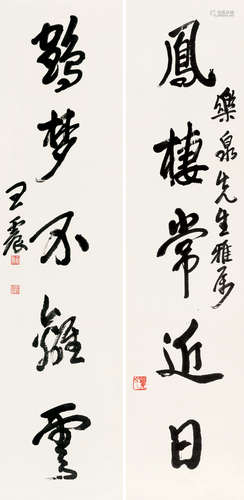 鳳棲常近日
樂泉先生雅属
鶴梦不離雲
王震